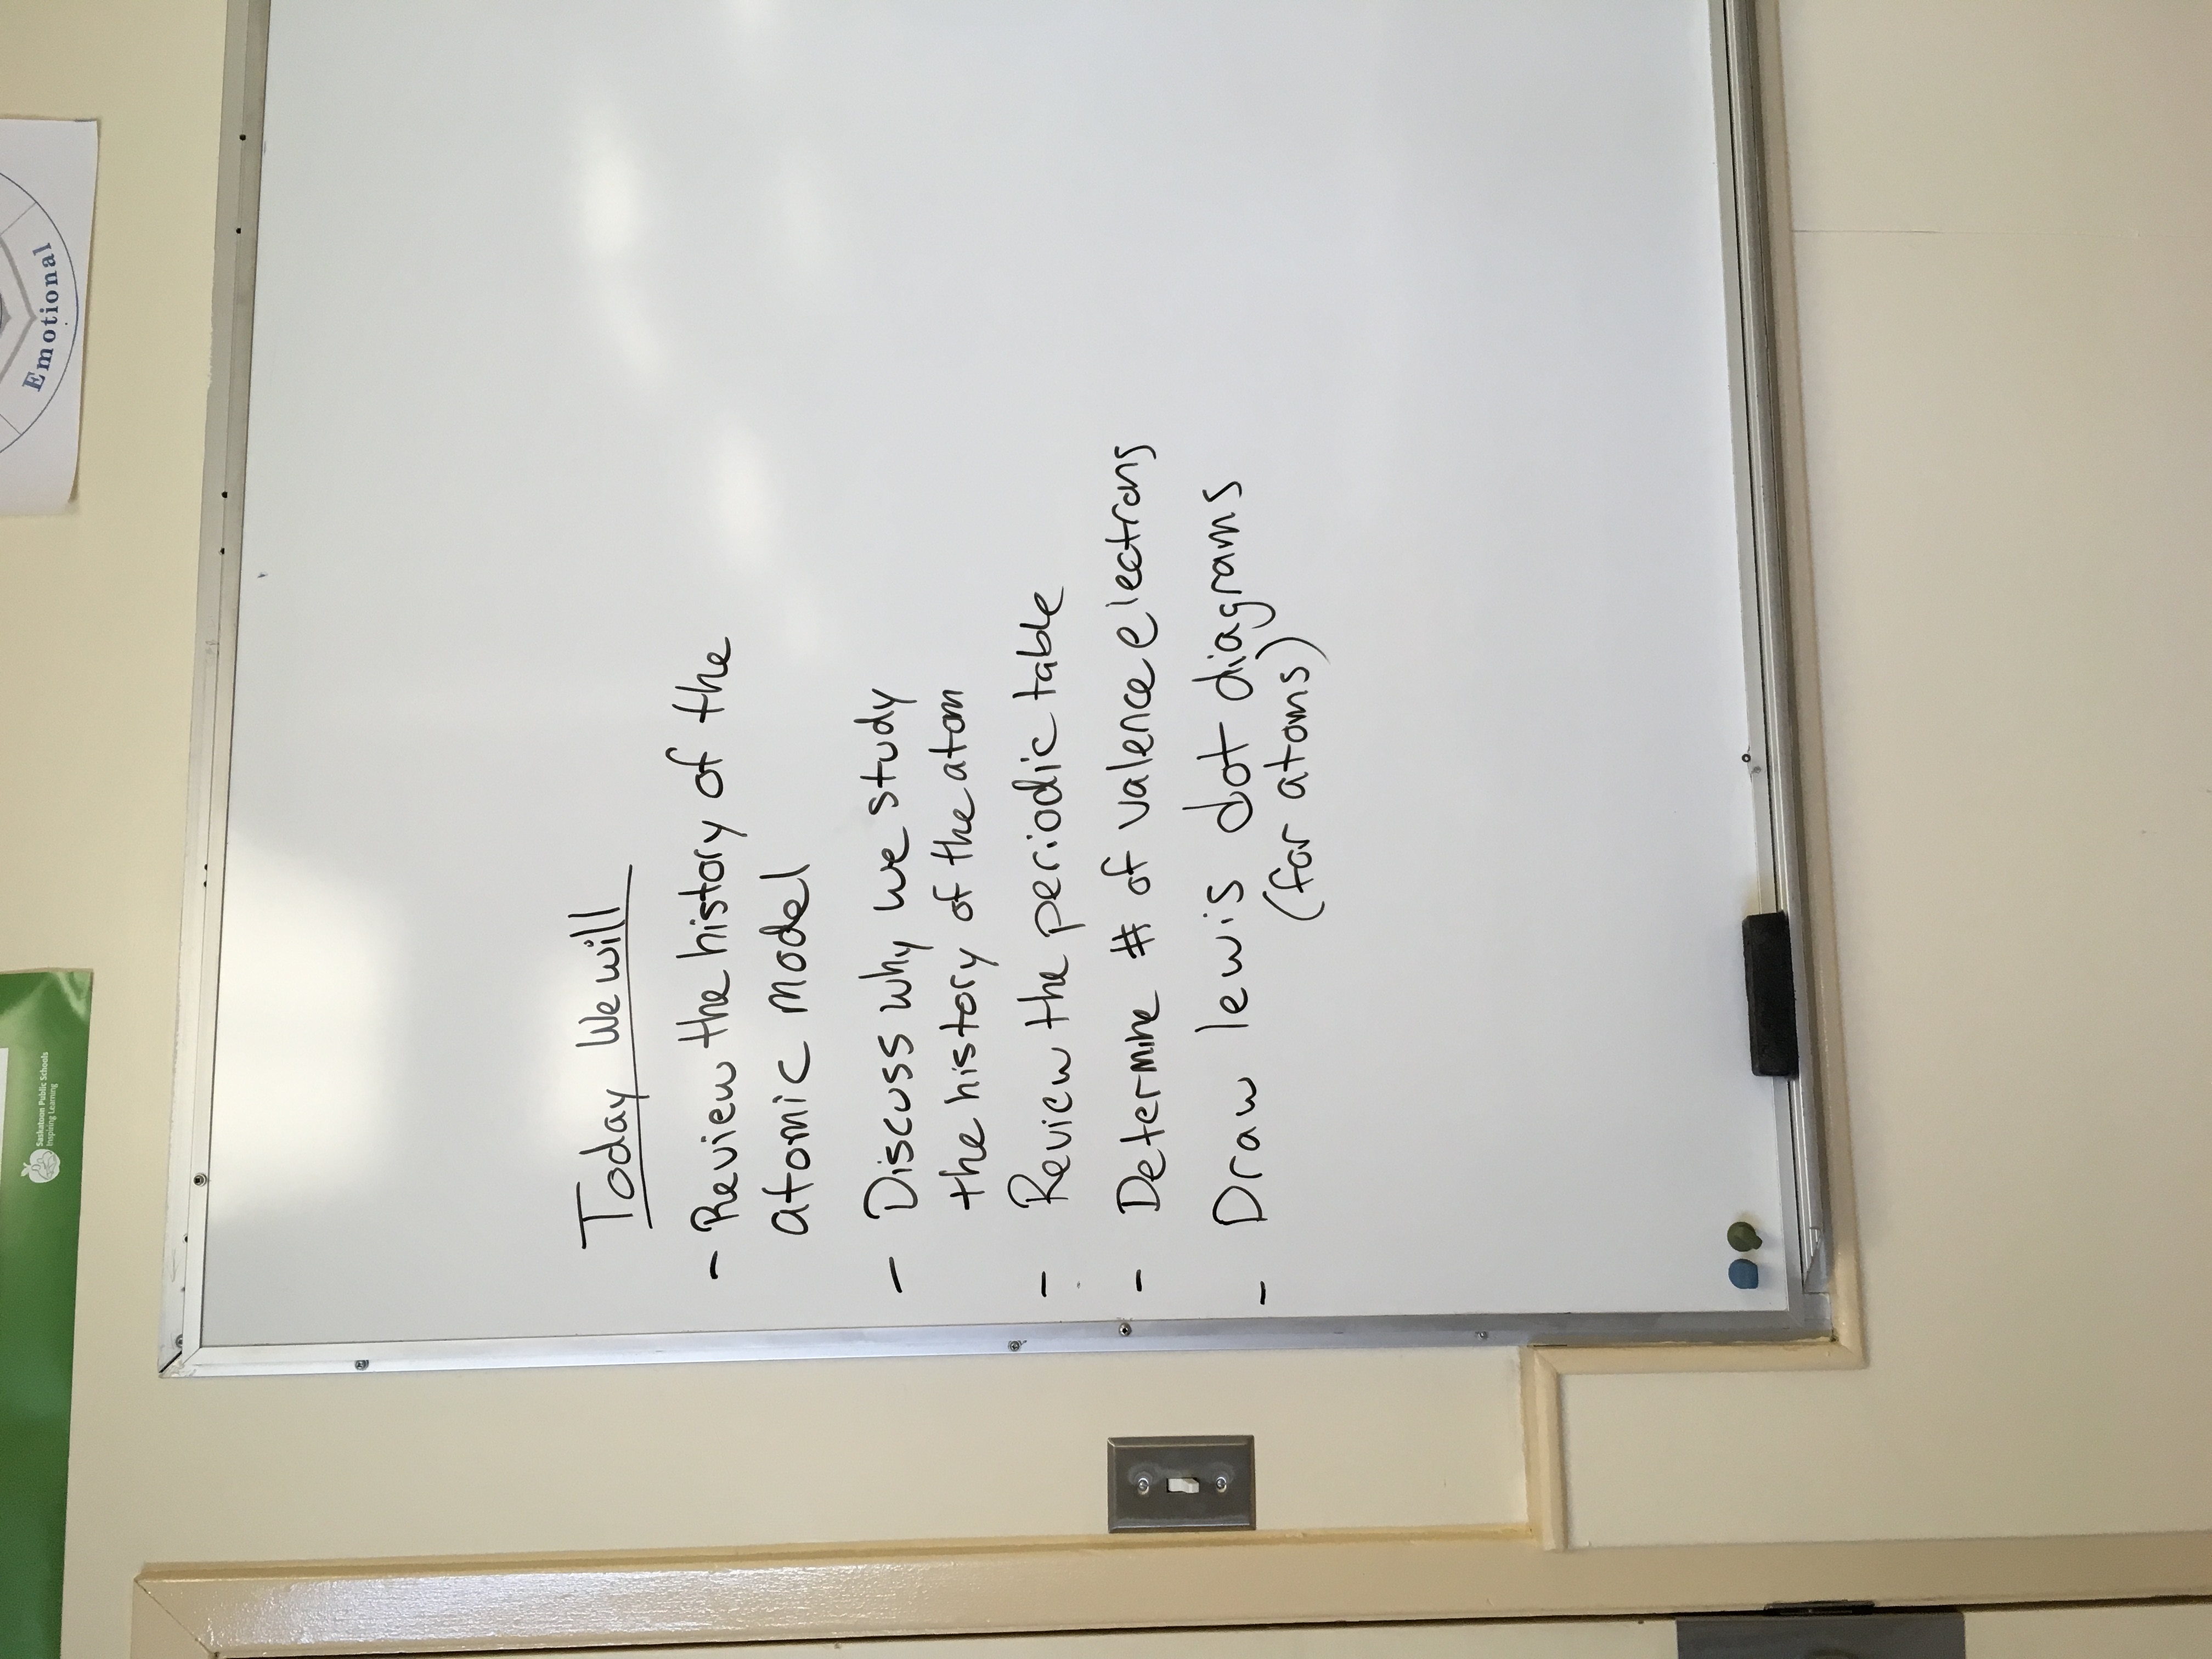 Emotional
Saskatoon Public Schools
Inspiring Learning
Today We will
- Review the history of the
atomic model
- Discuss why we study
the history of the atom
- Review the periodic table
- Determine # of valence electrons
- Draw lewis dot diagrams
(for atoms)